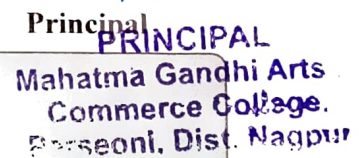 Principal
PRINCIPAL
Mahatma Gandhi Arts
Commerce College.
Parseoni, Dist. Nagpur